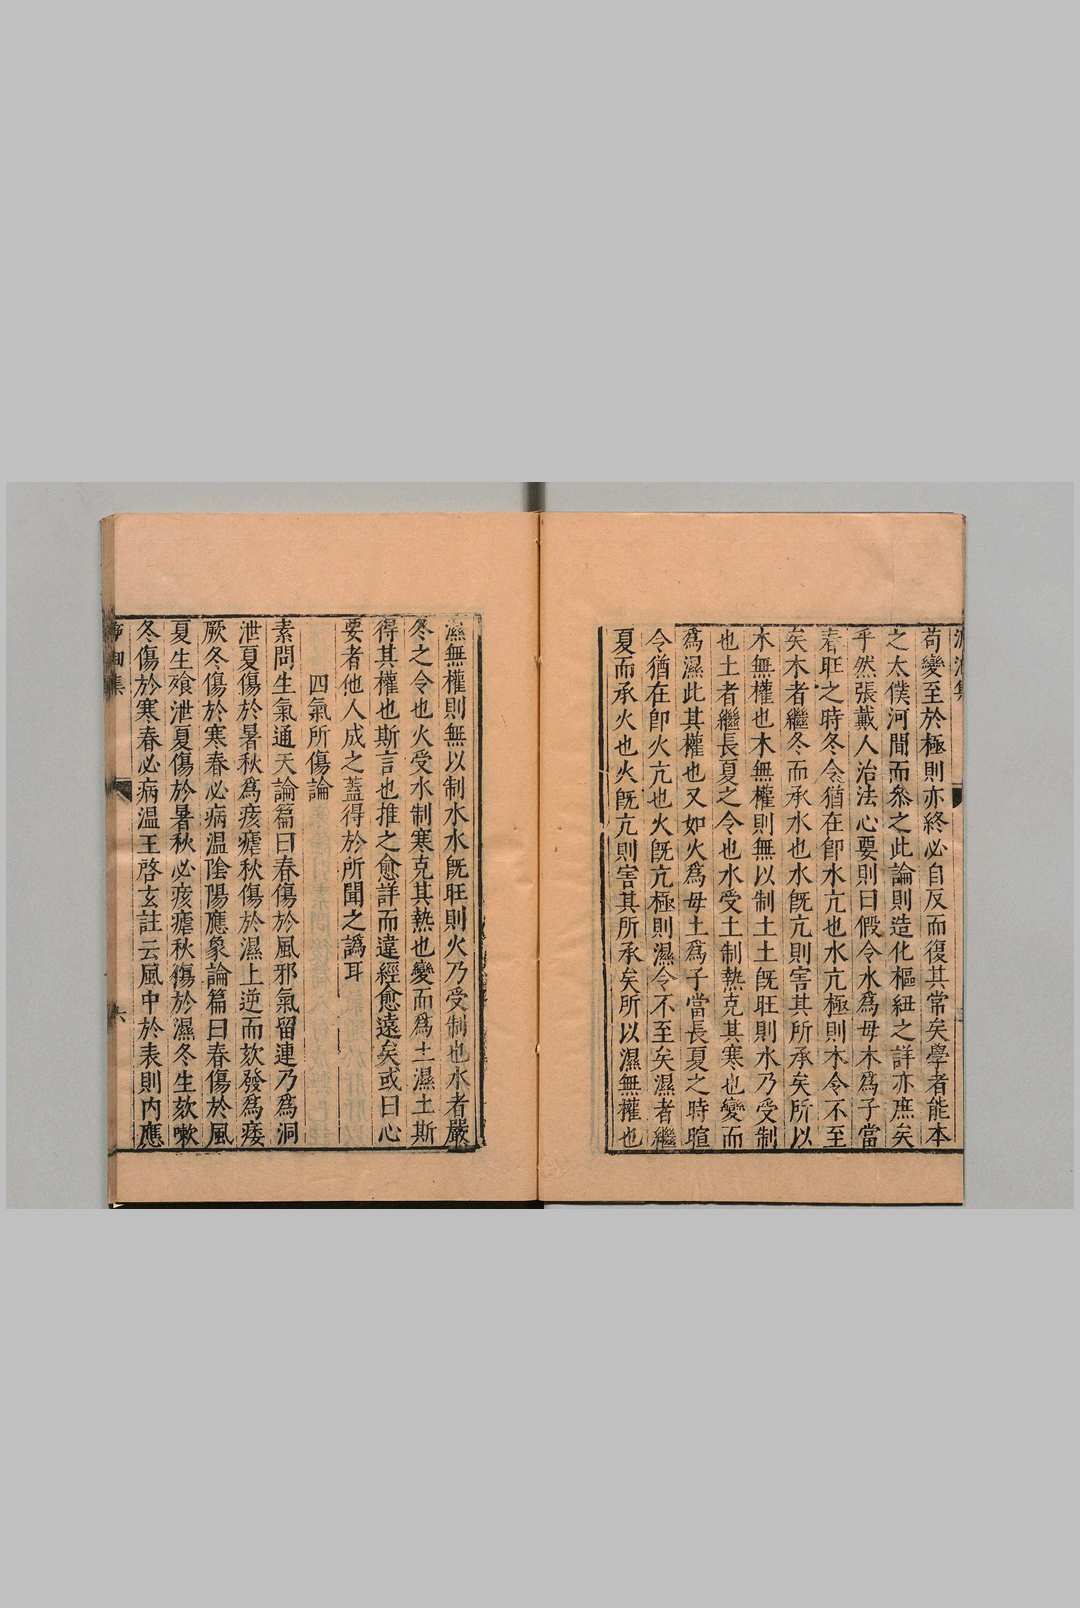 苟變至於極則亦終必自反而復其常矣學者能本
之太僕河間而叅之此論則造化樞紐之詳亦庶矣
乎然張戴人治法心要則曰假令水爲母木爲子當
春旺之時冬令猶在卽水亢也水亢極則木令不至
矣木者繼冬而承水也水旣亢則害其所承矣所以
木無權也木無權則無以制土土旣旺則水乃受制
也土者繼長夏之令也水受土制熱克其寒也變而
爲濕此其權也又如火爲母土爲子當長夏之時暄
令猶在卽火亢也火旣亢極則濕令不至矣濕者繼
夏而承火也火旣亢則害其所承矣所以濕無權也
濕無權則無以制水水旣旺則火乃受制也水者嚴
冬之令也火受水制寒克其熱也變而爲土濕土斯
得其權也斯言也推之愈詳而違經愈遠矣或曰心
要者他人成之蓋得於所聞之譌耳
四氣所傷論
素問生氣通天論篇曰春傷於風邪氣留連乃爲洞
泄夏傷於暑秋爲痎瘧秋傷於濕上逆而欬發爲痿
厥冬傷於寒春必病溫陰陽應象論篇曰春傷於風
夏生飱泄夏傷於暑秋必痎瘧秋傷於濕冬生欬嗽
冬傷於寒春必病溫王啓玄註云風中於表則內應
六